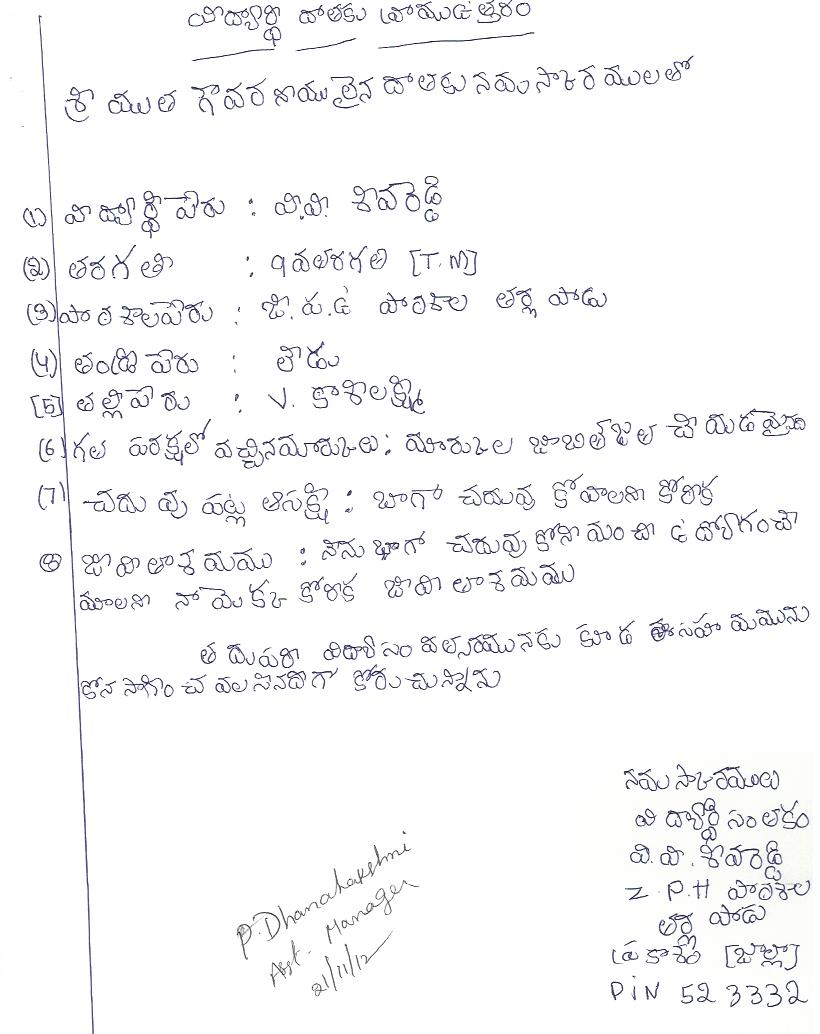 విద్యార్థి దాతకు వ్రాయు ఉత్తరం
శ్రీ యుత గౌవరణీయులైన దాతకు నమస్కారములతో
(1) విద్యార్థి పేరు : వి.వి. శివారెడ్డి
(2) తరగతి : 9వతరగతి [T.M]
(3) పాఠశాలపేరు : జి.ప.ఉ పాఠశాల తర్లుపాడు
(4) తండ్రి పేరు :
[5] తల్లిపేరు : V. కాశిలక్ష్మి
(6) గత పరీక్షలో వచ్చినమార్కులు : మార్కుల జాబితా జత చేయడమైనది
(7) చదువు పట్ల ఆసక్తి : బాగా చదువు కోవాలని కోరిక
(8) జీవితాశయము : నేను బాగా చదువుకొని మంచి ఉద్యోగంచే
యాలని నా యొక్క కోరిక జీవితాశయము
తదుపరి విద్యా సంవత్సరమునకు కూడ ఈ సహాయమును
కొనసాగించ వలసినదిగా కోరుచున్నాను
నమస్కారములు
విద్యార్థి సంతకం
వి.వి. శివారెడ్డి
Z.P.H పాఠశాల
తర్లుపాడు
ప్రకాశం [జిల్లా]
PIN 523332
P. Dhanalakshmi
Asst. Manager
21/11/12